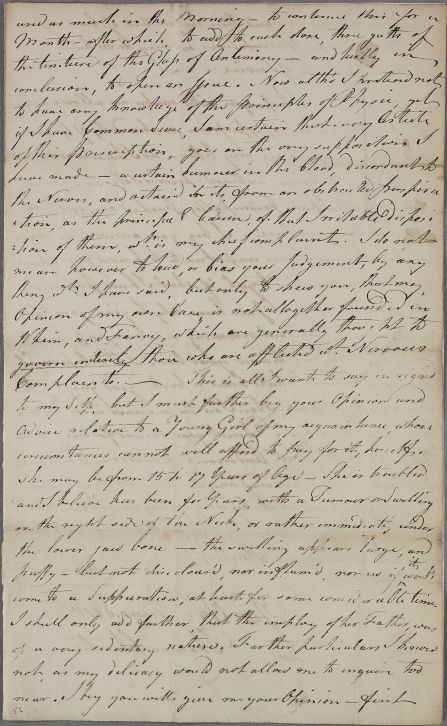 and as much in the Morning – to continue this for a
Month – after which to add to each dose, three gutts of
the tincture of the Glass of Antimony – and lastly in
conclusion, to open an Issue. – Now altho' I pretend not
to have any knowledge of the principles of Physic, yet
if I have Common Sense, I am certain that every Article
of this prescription, goes on the very supposition I
have made – a certain humour in the blood, discordant to
the Nerves, and retain'd in it, from an obstructed perspira
:tion, as the principal Cause, of that Irritable dispos:
:ition of them, wch. is my chief complaint. I do not
mean however to lead, or bias your Judgement, by any
thing wt. I have said, but only to shew you, that my
Opinion of my own Case, is not altogether found'd in
Whim, and Fancy, which are generally thou't to
govern entirely those who are afflicted wt. Nervous
Complaints. — This is all I want to say in regard
to my Self, but I must further beg your Opinion and
Advice relative to a Young Girl of my acquaintance, whose
circumstances cannot well afford to pay for it, herself.
She may be from 15 to 17 Years of Age – She is troubled
and I believe has been for Years, with a Tumour or Swelling
on the right side of the Neck, or rather immediatly under
the lower jaw bone — the swelling appears large, and
puffy – but not discolour'd, nor inflam'd, nor as if it would
come to a Suppuration, at least for some considerable time
I shall only add further, that the employ of her Father, was
of a very sedentary nature. Farther particulars I know
not, as my delicacy would not allow me to enquire too
near. I beg you will give me your Opinion – first